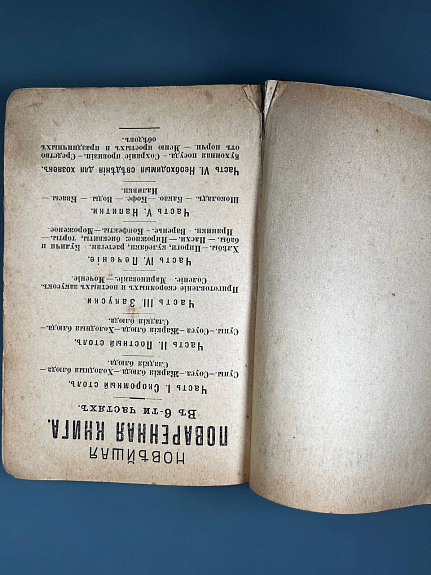 НОВѢЙШАЯ
ПОВАРЕННАЯ КНИГА.
Въ 6-ти частяхъ.
Часть I. Скоромный столъ.
Супы.—Соуса—Жаркія блюда—Холодныя блюда—
Сладкія блюда.
Часть II. Постный столъ.
Супы.—Соуса—Жаркія блюда.—Холодныя блюда.
Сладкія блюда.
Часть III. Закуски.
Приготовленіе скоромныхъ и постныхъ закусокъ
Соленіе.—Маринованіе.—Моченіе.
Часть IV. Печеніе.
Хлѣбы.—Пироги, кулебяки, растегаи. Куличи и
бабы.—Пасхи.—Пирожное: бисквиты, торты.—
Пряники. Варенье.—Конфекты.—Мороженое.
Часть V. Напитки.
Шоколадъ.—Какао.—Кофе.—Воды.—Квасы.—
Наливки.
Часть VI. Необходимыя свѣдѣнія для хозяекъ.
Кухонная посуда.—Сохраніе провизіи.—Средство
отъ порчи.—Меню простыхъ и праздничныхъ
обѣдовъ.